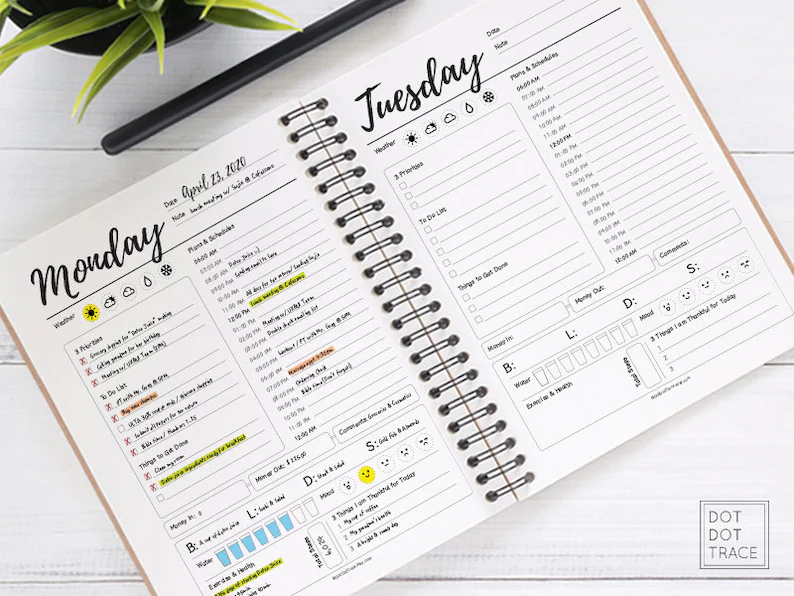 Monday
Date April 23, 2020
Note Lunch meeting w/ Suzie @
Weather
3 Priorities
Grocery shopping for "Detox Juice" making
for her birthday
Meeting w/ UX&I Team (2PM)
To Do List
PT with Mr. Greg @ 6PM
Buy new shampoo
ULTA 30% coupon ends / skincare shopping
Submit all papers for tax return
Bible time / Numbers 1-26
Things to Get Done
Clean my room
Detox juice ingredients ready for breakfast
Plans & Schedules
06:00 AM
07:00 AM Detox Juice :)
08:00 AM
09:00 AM
10:00 AM
11:00 AM Lunch meeting @
12:00 PM
01:00 PM
02:00 PM Meeting w/ UX&I Team
03:00 PM Double check emailing list
04:00 PM
05:00 PM
06:00 PM Workout / PT with Mr. Greg @ 6PM
07:00 PM
08:00 PM Massage appt
09:00 PM Ordering
10:00 PM Bible time (Don't forget)
11:00 PM
12:00 AM
Money In: 0
Money Out: $
Comments: Groceries & Cosmetics
B: A cup of detox juice
L: Sushi & Salad
D: Steak & Salad
S: Gold Fish & Almonds
Water
Mood
Total Steps
Exercise & Health
3 Things I am Thankful for Today
1 My cup of coffee
2 My grandma's health
3 A bright & sunny day
Tuesday
Date
Note
Weather
3 Priorities
To Do List
Things to Get Done
Plans & Schedules
06:00 AM
07:00 AM
08:00 AM
09:00 AM
10:00 AM
11:00 AM
12:00 PM
01:00 PM
02:00 PM
03:00 PM
04:00 PM
05:00 PM
06:00 PM
07:00 PM
08:00 PM
09:00 PM
10:00 PM
11:00 PM
12:00 AM
Money In:
Money Out:
Comments:
B:
L:
D:
S:
Water
Mood
Total Steps
Exercise & Health
3 Things I am Thankful for Today
1
2
3
DOT
DOT
TRACE